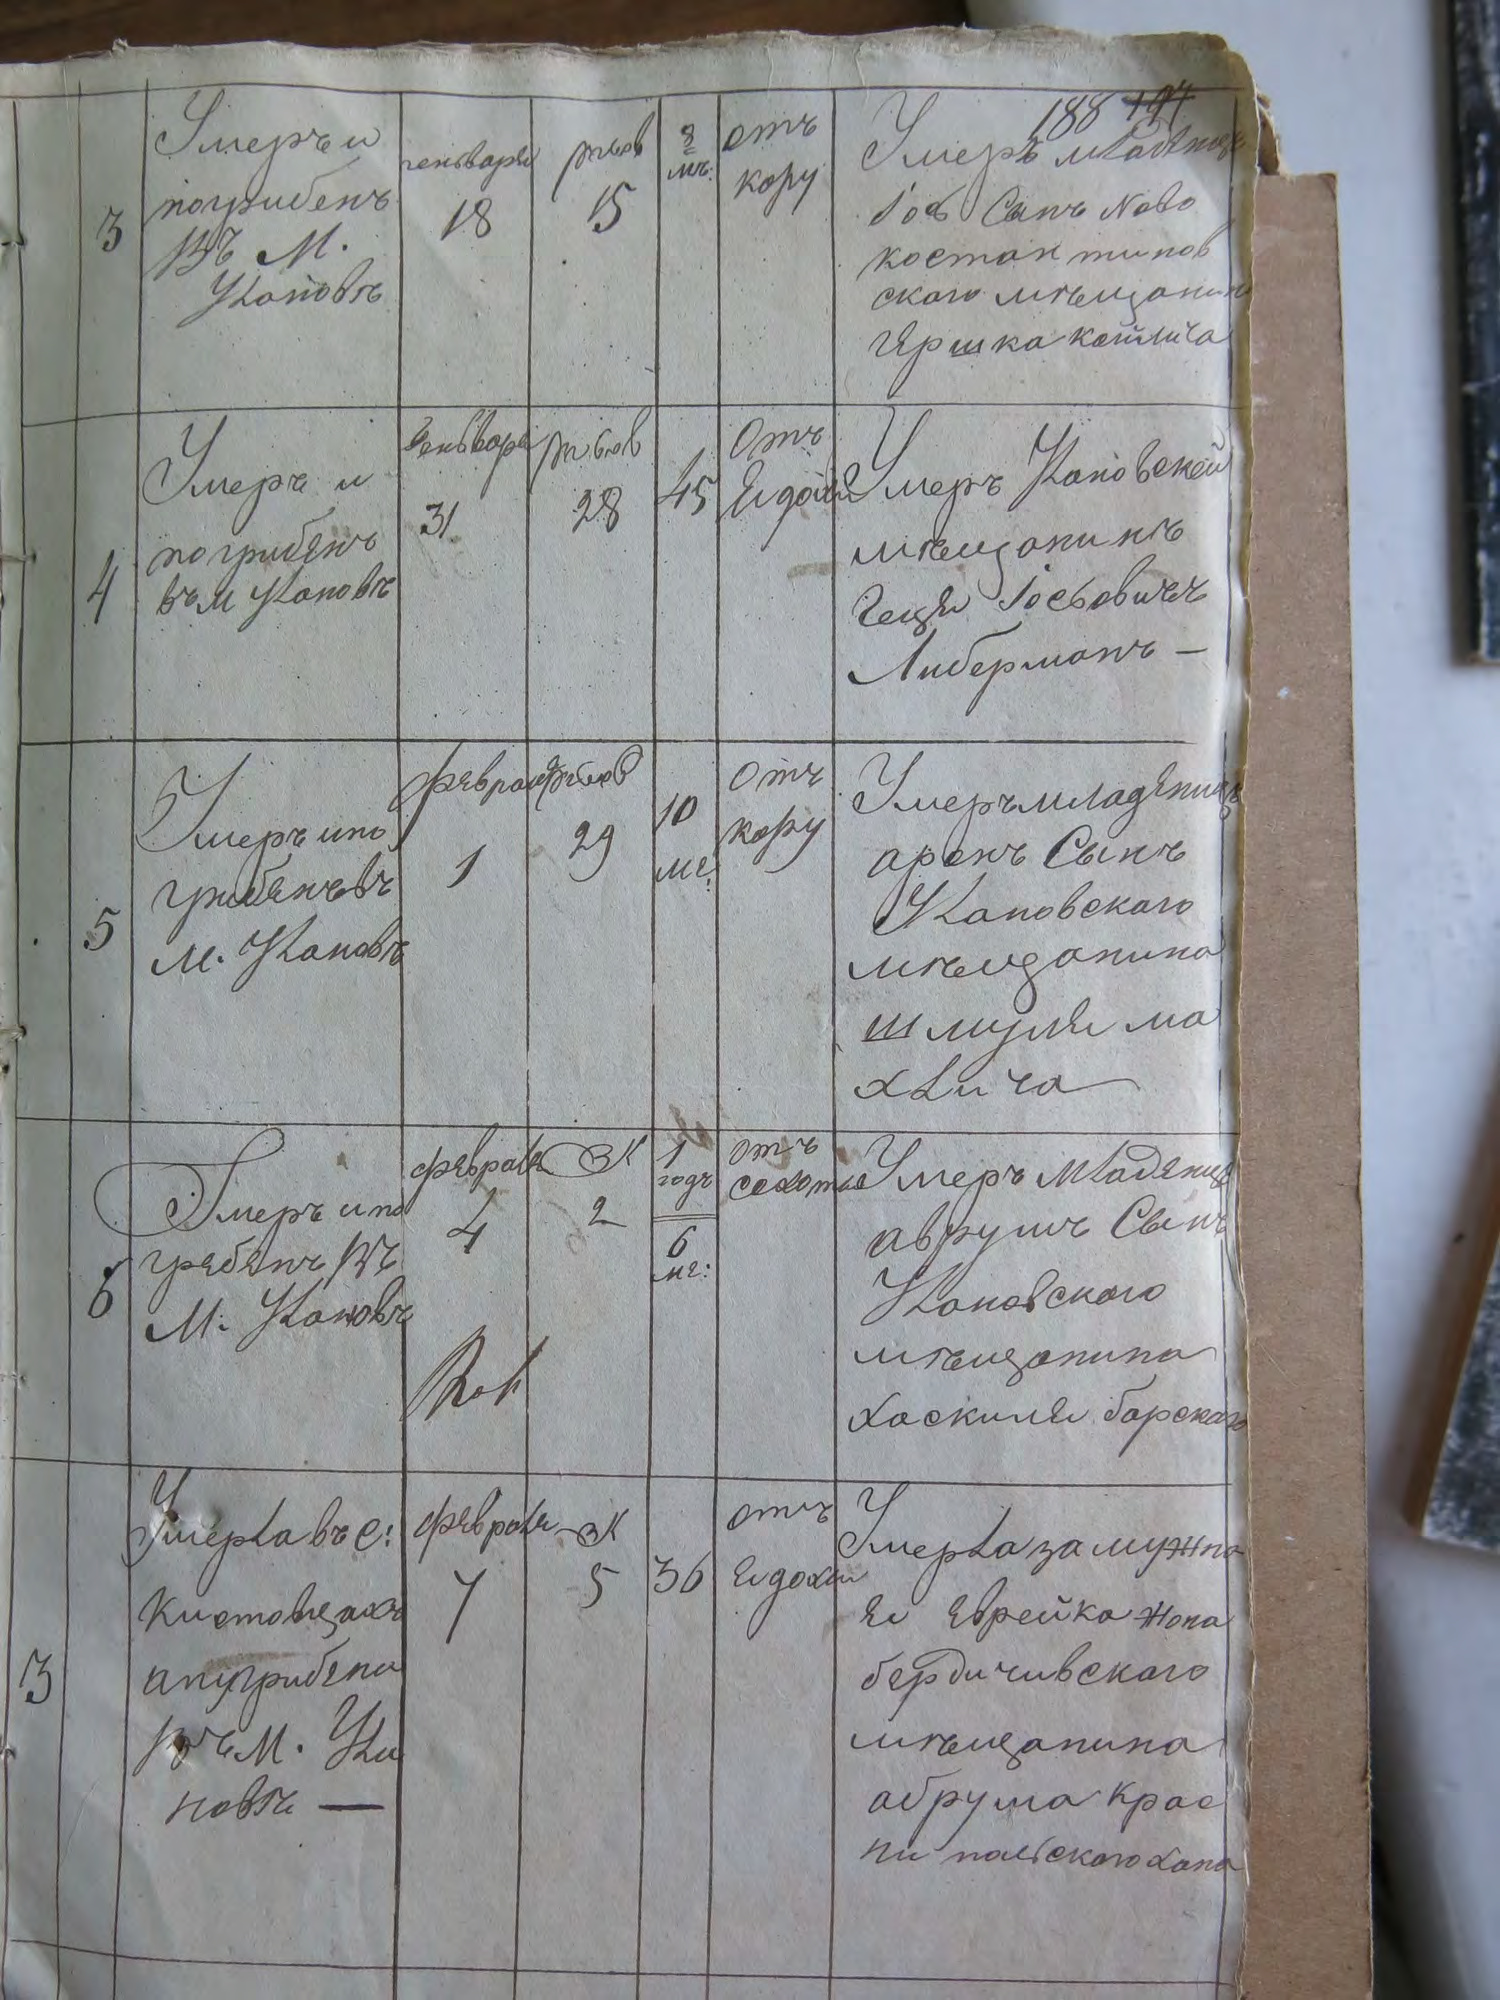 188 197
3
Умеръ и
погрибенъ
въ М.
Улановѣ
генваря
18
15
8
мѣ:
отъ
кору
Умеръ младенецъ
Іось Сынъ Ново
костантинов
ского мѣщанина
Гершка
4
Умеръ и
погрибенъ
въ м Улановѣ
Генваря
31
28
45
Отъ
Умеръ Улановскей
мѣщанинъ
Іосьовичъ
Либерманъ —
5
Умеръ ипо
грибенъ въ
м. Улановѣ
февраля
1
29
10
ме:
Отъ
кору
Умеръ младенецъ
аронъ Сынъ
Улановского
мѣщанина
шмуля ма
хлича
6
Умеръ ипо
гребенъ въ
М. Улановѣ
февраля
4
2
1
годъ
6
ме:
отъ
сохоты
Умеръ младенец
аврумъ Сынъ
Улановского
мѣщанина
хаскиля барского
3
Умерла въ с:
въ М. Ула
новѣ —
февраля
7
5
36
отъ
Умерла замужна
я еврейка жона
бердичивского
мѣщанина
абрума Крас
ни польского хана